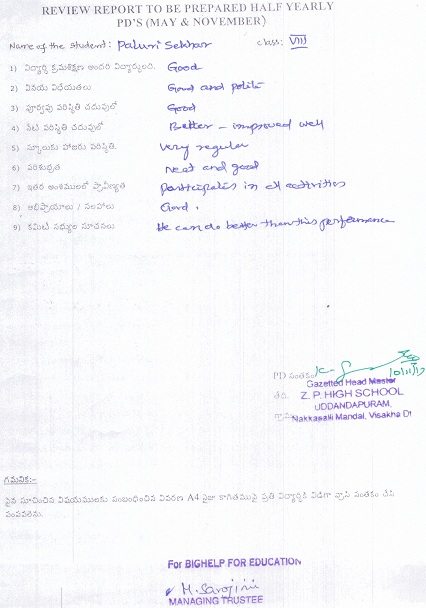 REVIEW REPORT TO BE PREPARED HALF YEARLY
PD'S (MAY & NOVEMBER)
Name of the Student: Paluri Sekhar class: VIII
1) విద్యార్థి క్రమశిక్షణ అందరి విద్యార్థులతో. Good
2) వినయ విధేయతలు Good and polite
3) పూర్వపు పరిస్థితి చదువులో Good
4) నేటి పరిస్థితి చదువులో Better - improved well
5) స్కూలుకు హాజరు పరిస్థితి. Very regular
6) పరిశుభ్రత Neat and good
7) ఇతర అంశములలో ప్రావీణ్యత Participates in all activities
8) అభిప్రాయాలు / సలహాలు Good.
9) కమిటీ సభ్యుల సూచనలు He can do better than this performance
PD సంతకం
Gazetted Head Master
తేది. Z. P. HIGH SCHOOL
UDDANDAPURAM,
గ్రామం Nakkapalli Mandal, Visakha Dt
గమనిక:-
పైన సూచించిన విషయములకు సంబంధించిన వివరణ A4 సైజు కాగితముపై ప్రతి విద్యార్థికి విడిగా వ్రాసి సంతకం చేసి
పంపవలెను.
For BIGHELP FOR EDUCATION
M. Sarojini
MANAGING TRUSTEE